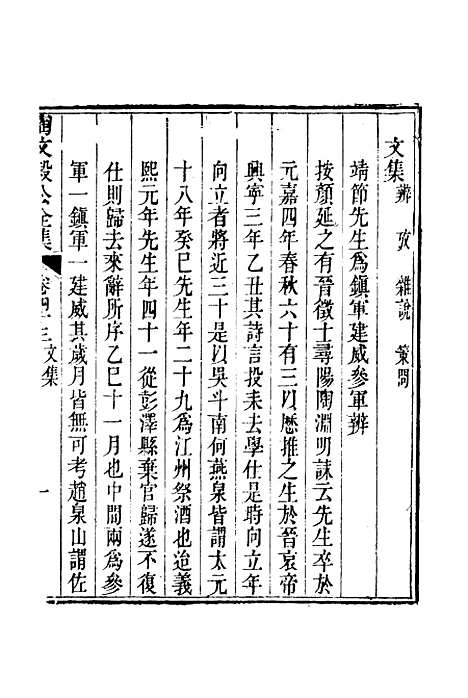 文集 辨 攷 雜說 策問
靖節先生爲鎭軍建威參軍辨
按顏延之有晉徵士尋陽陶淵明誄云先生卒於
元嘉四年春秋六十有三以歷推之生於晉哀帝
興寧三年乙丑其詩言投耒去學仕是時向立年
向立者將近三十是以吳斗南何燕泉皆謂太元
十八年癸巳先生年二十九爲江州祭酒也迨義
熙元年先生年四十一從彭澤縣棄官歸遂不復
仕則歸去來辭所序乙巳十一月也中間兩爲參
軍一鎭軍一建威其歲月皆無可考趙泉山謂佐
陶文毅公全集 卷四十三文集 一